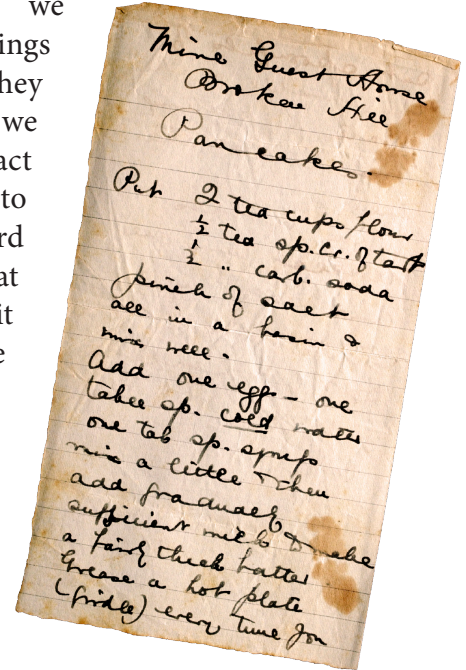 we
ings
hey
we
act
to
rd
at
it
e
Mine Guest House
Broken Hill
Pancakes.
Put 2 tea cups flour
½ tea sp. cr. of tart
½ " carb. soda
pinch of salt
all in a basin &
mix well.
Add one egg - one
table sp. cold water
one tab sp. syrup
mix a little & then
add gradually
sufficient milk to make
a fairly thick batter
Grease a hot plate
(girdle) every time you